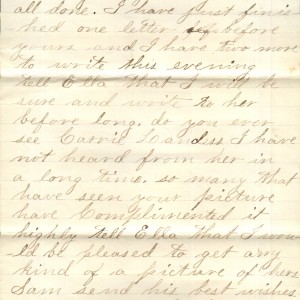 all done. I have just finis
hed one letter before
yours and I have two more
to write this evening
tell Ella that I will be
sure and write to her
before long. do you ever
see Carril Landiss I have
not heard from her in
a long time. so many that
have seen your picture
have Complimented it
highly tell Ella that I wou-
ld be pleased to get any
kind of a picture of hers
Sam send his best wishes